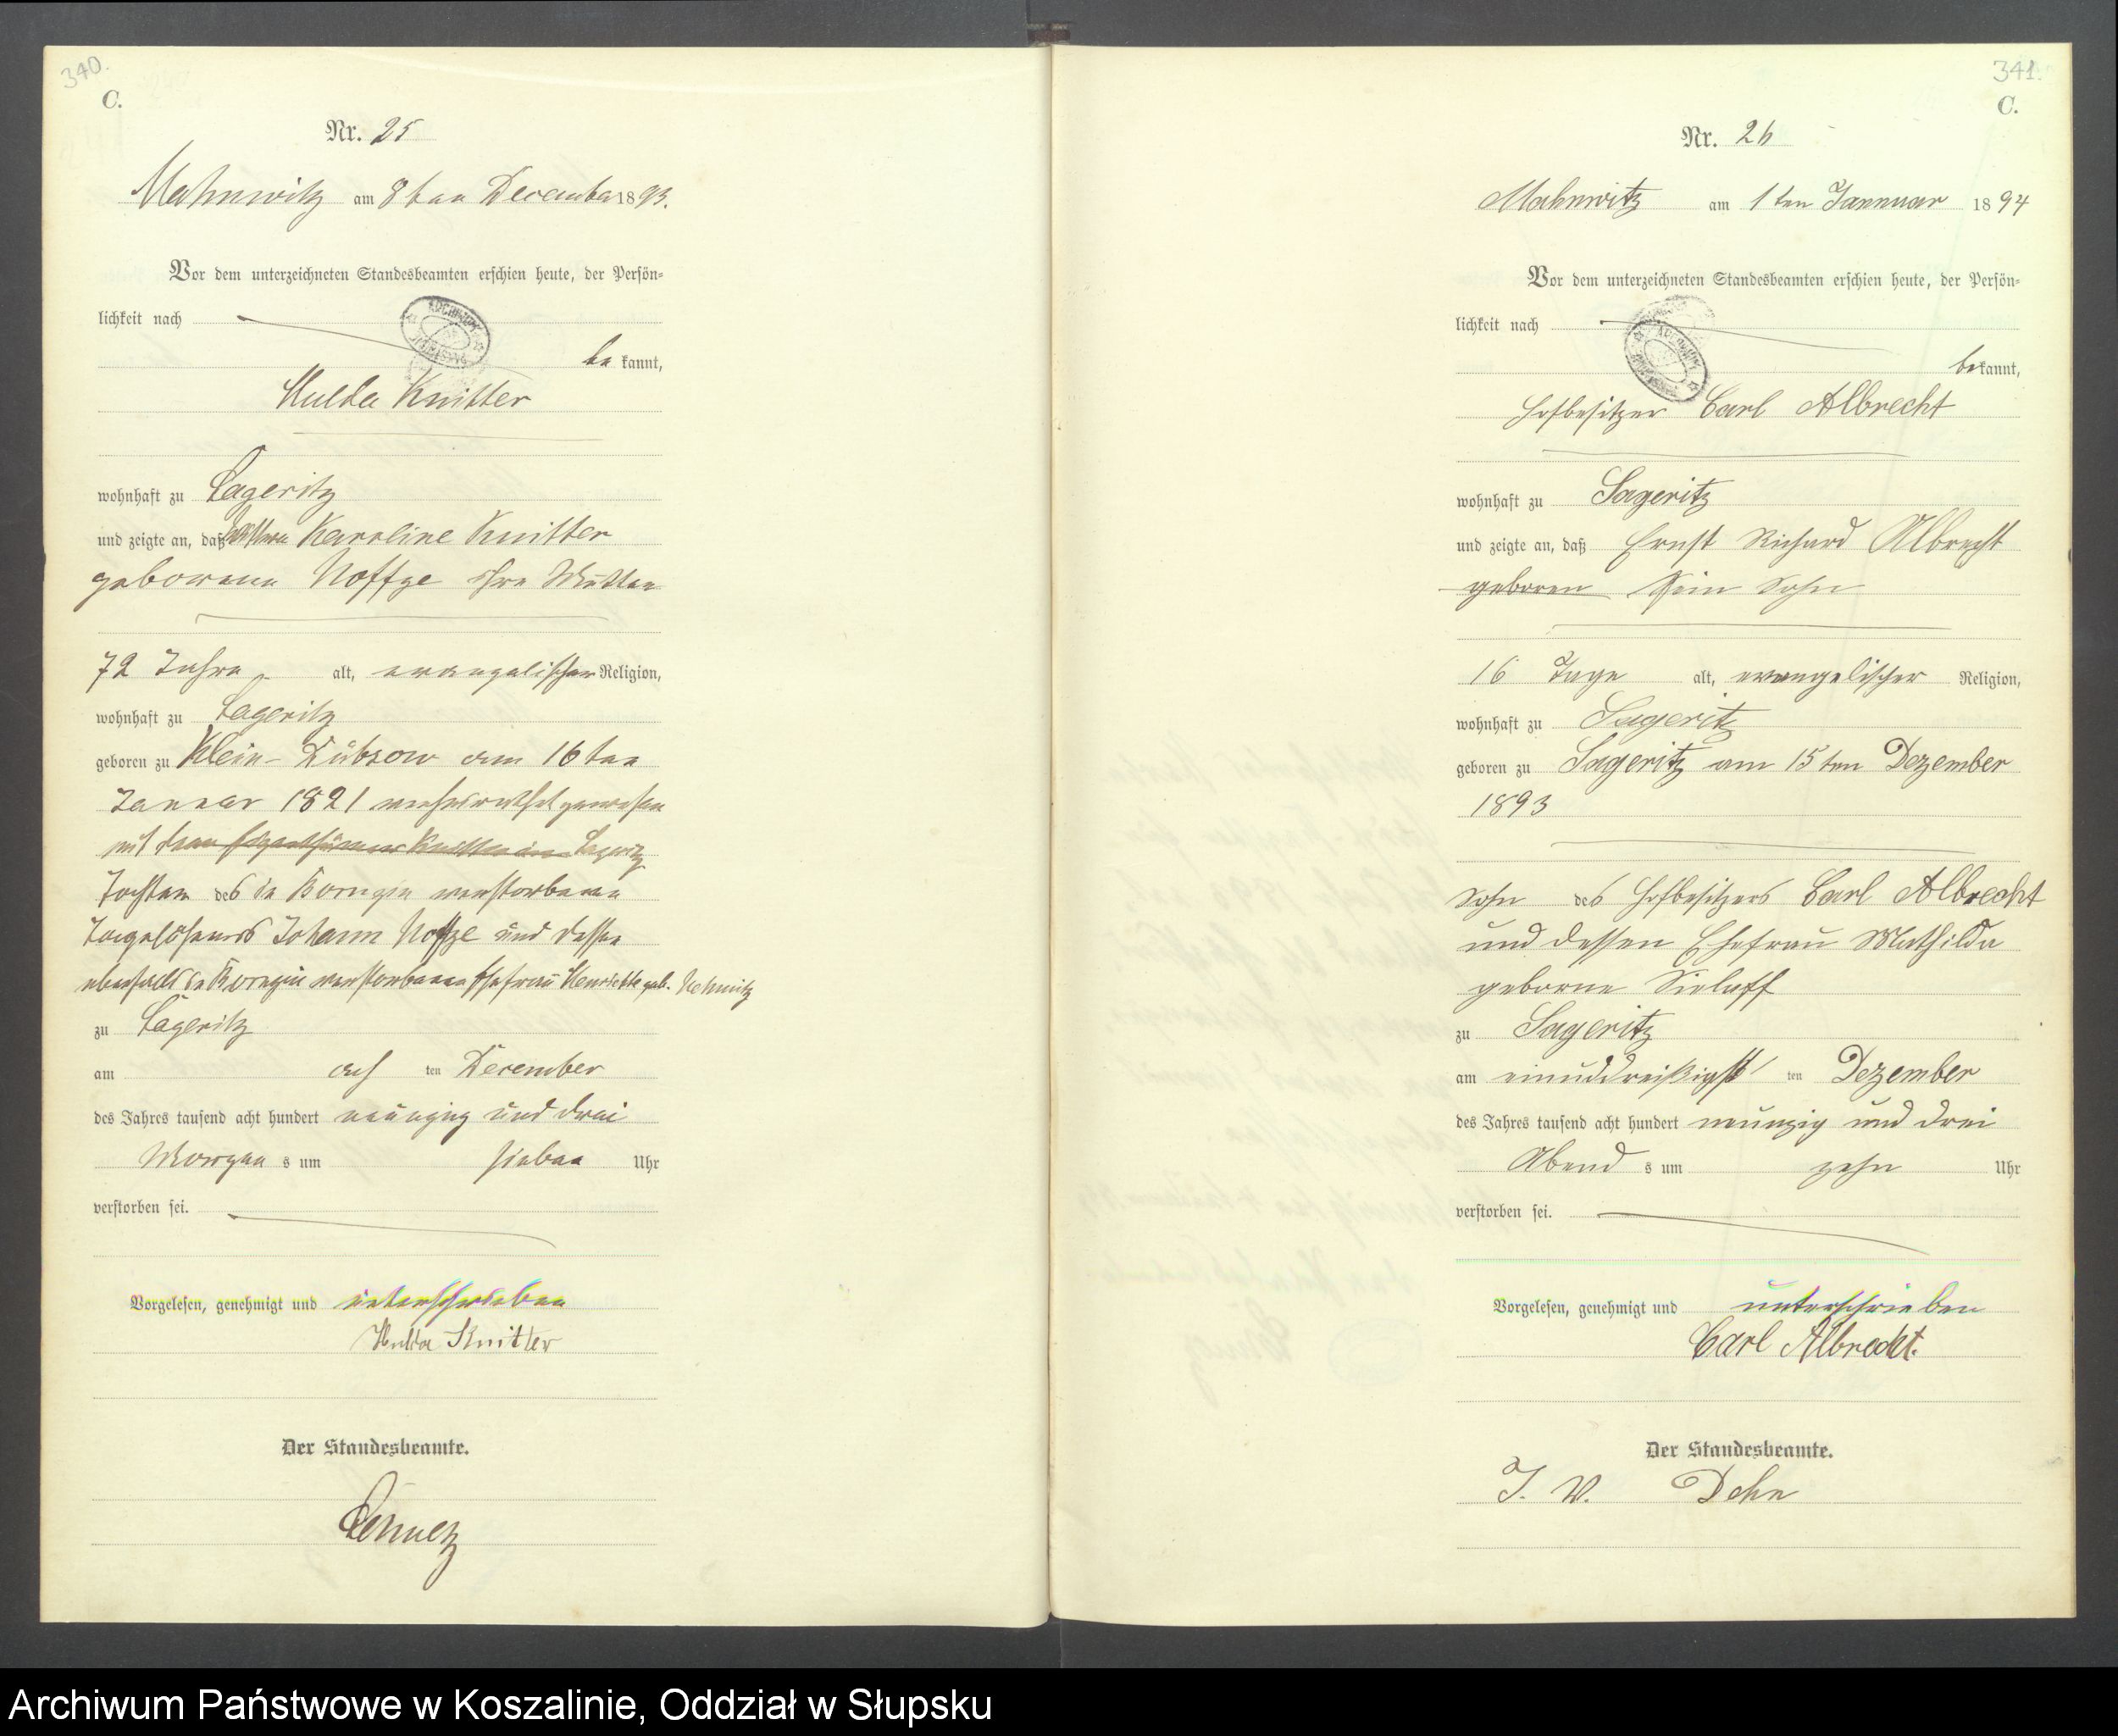 340.
C.
Nr. 25
Mahnwitz am 8ten December 1893.
Vor dem unterzeichneten Standesbeamten erschien heute, der Persön-
lichkeit nach
bekannt,
Hulda Knitter
wohnhaft zu Lageritz
und zeigte an, daß Karoline Knitter
geborene Noffze ihre Mutter
72 Jahre alt, evangelischer Religion,
wohnhaft zu Lageritz
geboren zu Klein-Lübzow am 16ten
Januar 1821 verheirathet gewesen
mit dem Eigenthümer Knitter in Lageritz
Tochter des
verstorbenen
Tagelöhners Johann Noffze und dessen
ebenfalls verstorbenen Ehefrau Henriette geb.
zu Lageritz
am acht ten December
des Jahres tausend acht hundert neunzig und drei
Morgens um sieben Uhr
verstorben sei.
Vorgelesen, genehmigt und unterschrieben
Hulda Knitter
Der Standesbeamte.
341.
C.
Nr. 26
Mahnwitz am 1ten Jannuar 1894
Vor dem unterzeichneten Standesbeamten erschien heute, der Persön-
lichkeit nach
bekannt,
Hofbesitzer Carl Albrecht
wohnhaft zu Sageritz
und zeigte an, daß Ernst Richard Albrecht
geboren sein Sohn
16 Tage alt, evangelischer Religion,
wohnhaft zu Sageritz
geboren zu Sageritz am 15ten Dezember
1893
Sohn des Hofbesitzers Carl Albrecht
und dessen Ehefrau Mathilde
geborne Sielaff
zu Sageritz
am einuddreißigst ten Dezember
des Jahres tausend acht hundert neunzig und drei
Abends um zehn Uhr
verstorben sei.
Vorgelesen, genehmigt und unterschrieben
Carl Albrecht.
Der Standesbeamte.
J. V. Dehn
Archiwum Państwowe w Koszalinie, Oddział w Słupsku